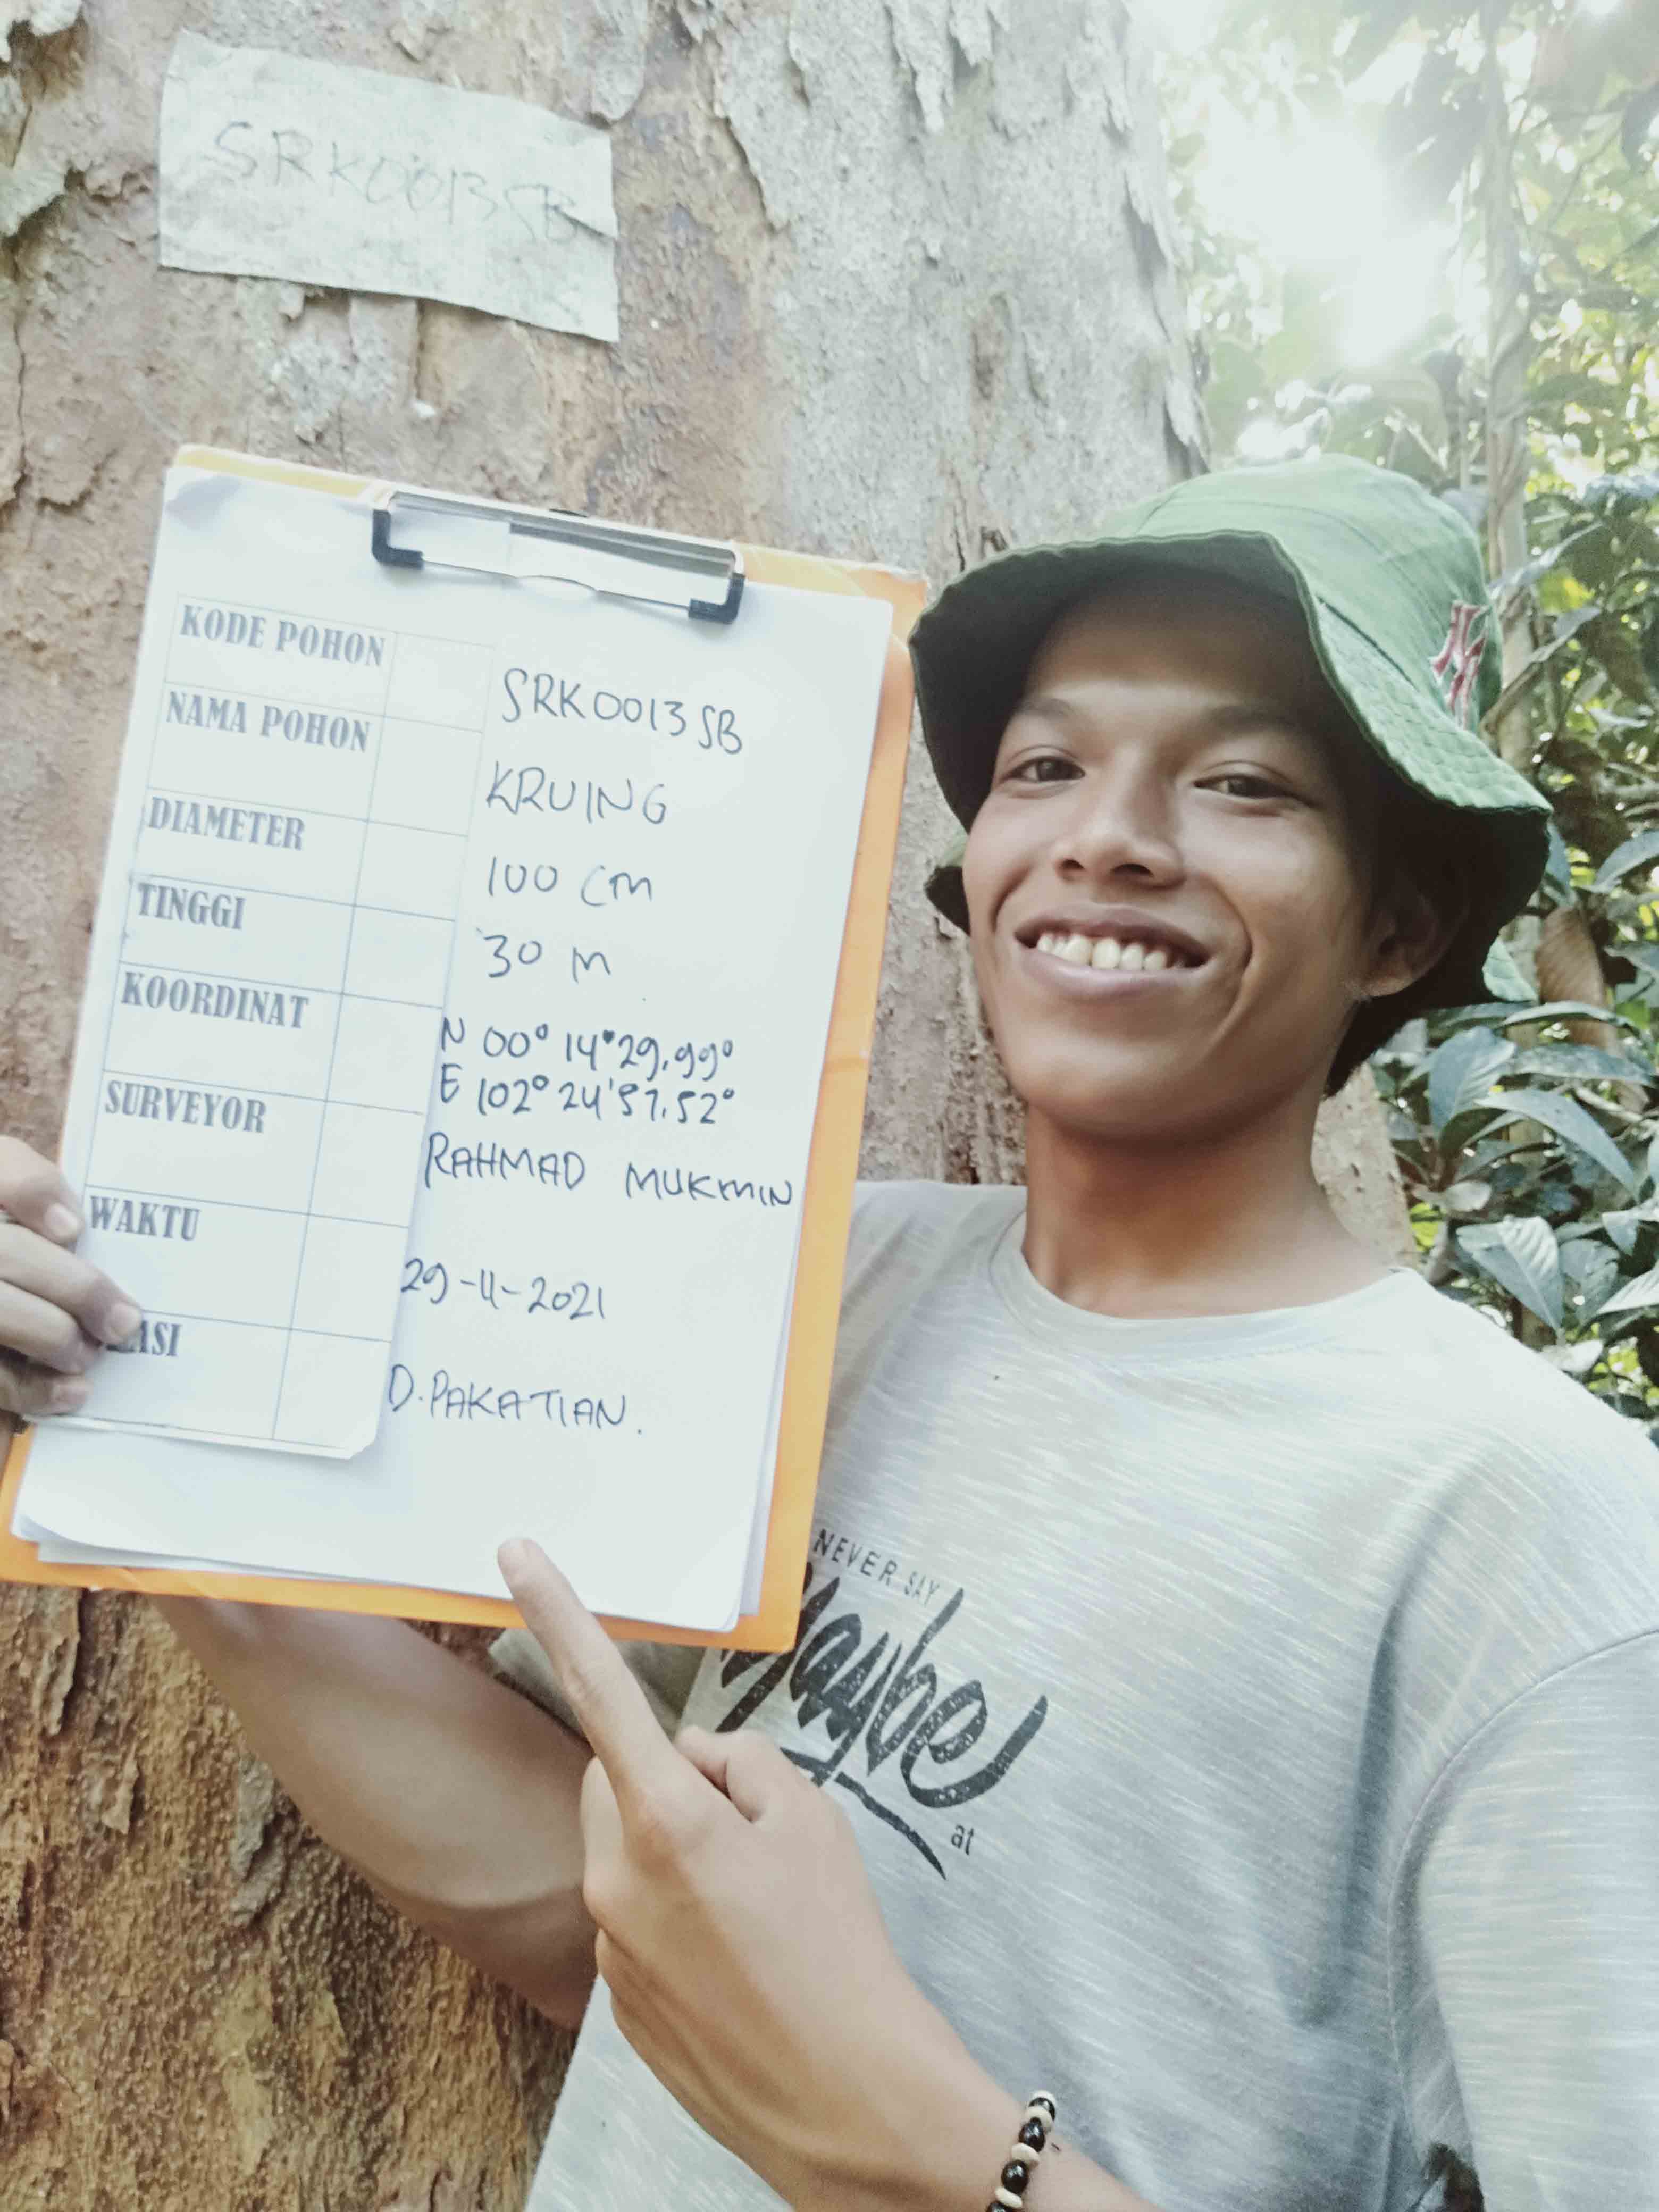 SRK0013SB
KODE POHON SRK0013SB
NAMA POHON KRUING
DIAMETER 100 CM
TINGGI 30 M
KOORDINAT N 00° 14°29,99°
E 102° 24'57.52°
SURVEYOR RAHMAD MUKMIN
WAKTU 29-11-2021
D.PAKATIAN.
NEVER SAY
Maybe
at
NY